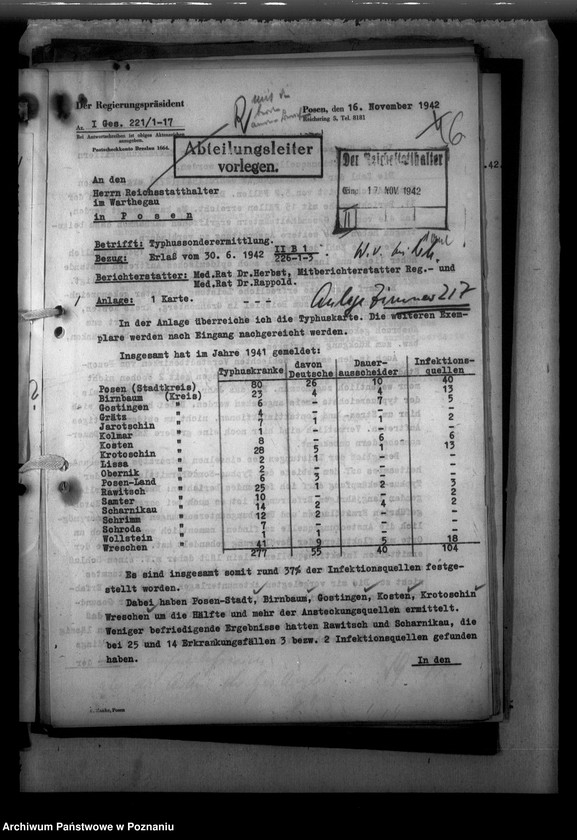 Der Regierungspräsident
Posen, den 16. November 1942
An I Ges. 221/1-17
Reichsring 3, Tel. 8181
Bei Antwortschreiben ist obiges Aktenzeichen
anzugeben.
Postscheckkonto Breslau
Abteilungsleiter
vorlegen.
Der Reichsstatthalter
Eing. 17. NOV 1942
An den
Herrn Reichsstatthalter
im Warthegau
in Posen
Betrifft: Typhussonderermittlung.
Bezug: Erlaß vom 30. 6. 1942 II B 1 / 226-1-3 .
Berichterstatter: Med.Rat Dr.Herbst, Mitberichterstatter Reg.- und
Med.Rat Dr.Rappold.
Anlage: 1 Karte. - - -
Anlage Zimmer 217
In der Anlage überreiche ich die Typhuskarte. Die weiteren Exem-
plare werden nach Eingang nachgereicht werden.
Insgesamt hat im Jahre 1941 gemeldet:
Typhuskranke davon Deutsche Dauer-ausscheider Infektions-quellen
Posen (Stadtkreis) 80 26 10 40
Birnbaum (Kreis) 23 4 4 13
Gostingen " 6 - 7 5
Grätz " 4 - - -
Jarotschin " 7 1 1 2
Kolmar " 1 - - -
Kosten " 8 - 6 6
Krotoschin " 28 5 1 13
Lissa " 2 1 - -
Obernik " 2 - - -
Posen-Land " 6 3 - -
Rawitsch " 25 1 2 3
Samter " 10 - - 2
Scharnikau " 14 2 4 2
Schrimm " 12 2 - -
Schroda " 7 - - -
Wollstein " 1 1 - -
Wreschen " 41 9 5 18
277 55 40 104
Es sind insgesamt somit rund 37% der Infektionsquellen festge-
stellt worden.
Dabei haben Posen-Stadt, Birnbaum, Gostingen, Kosten, Krotoschin
Wreschen um die Hälfte und mehr der Ansteckungsquellen ermittelt.
Weniger befriedigende Ergebnisse hatten Rawitsch und Scharnikau, die
bei 25 und 14 Erkrankungsfällen 3 bezw. 2 Infektionsquellen gefunden
haben.
In den
Archiwum Państwowe w Poznaniu